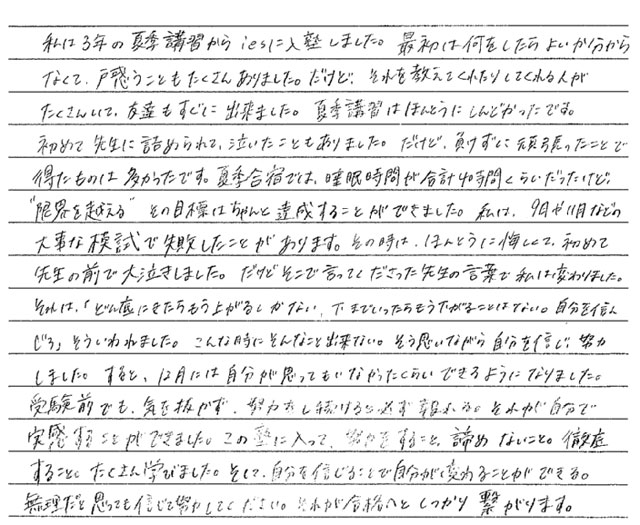 私は3年の夏季講習からiesに入塾しました。最初は何をしたらよいか分から
なくて、戸惑うこともたくさんありました。だけど、それを教えてくれたりしてくれる人が
たくさんいて、友達もすぐに出来ました。夏季講習はほんとうにしんどかったです。
初めて先生に詰められて、泣いたこともありました。だけど、負けずに頑張ったことで
得たものは多かったです。夏季合宿では、睡眠時間が合計40時間くらいだったけど、
"限界を越える" その目標はちゃんと達成することができました。私は、9月や11月などの
大事な模試で失敗したことがあります。その時は、ほんとうに悔しくて、初めて
先生の前で大泣きしました。だけどそこで言ってくださった先生の言葉で私は変わりました。
それは、「どん底にきたらもう上がるしかない、下までいったらもう下がることはない。自分を信
じろ」そういわれました。こんな時にそんなこと出来ない。そう思いながら自分を信じ、努力
しました。すると、12月には自分が思ってもいなかったくらいできるようになりました。
受験前でも、気を抜かず、努力をし続けると必ず報われる。それが自分で
実感することができました。この塾に入って、努力をすること、諦めないこと。徹底
すること、たくさん学びました。そして、自分を信じることで自分が変わることができる。
無理だと思っても信じて努力してください。それが合格へとしっかり繋がります。